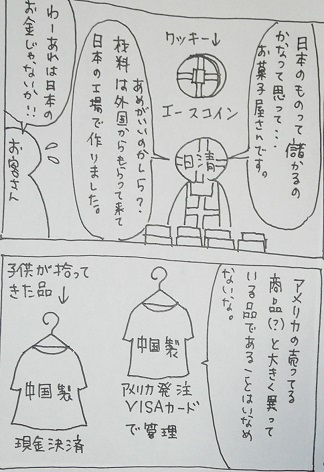 日本のものって儲かるの
かなって思って・・・
お菓子屋さんです。
クッキー↓
エースコイン
日清
あめがいいのかしら？
材料は外国からもらって来て
日本の工場で作りました。
わーあれは日本の
お金じゃないか!!
お客さん
アメリカの売ってる
商品(?)と大きく異って
いる品であることはいなめ
ないな。
中国製
アメリカ発注
VISAカード
で管理
子供が拾って
きた品
中国製
現金決済